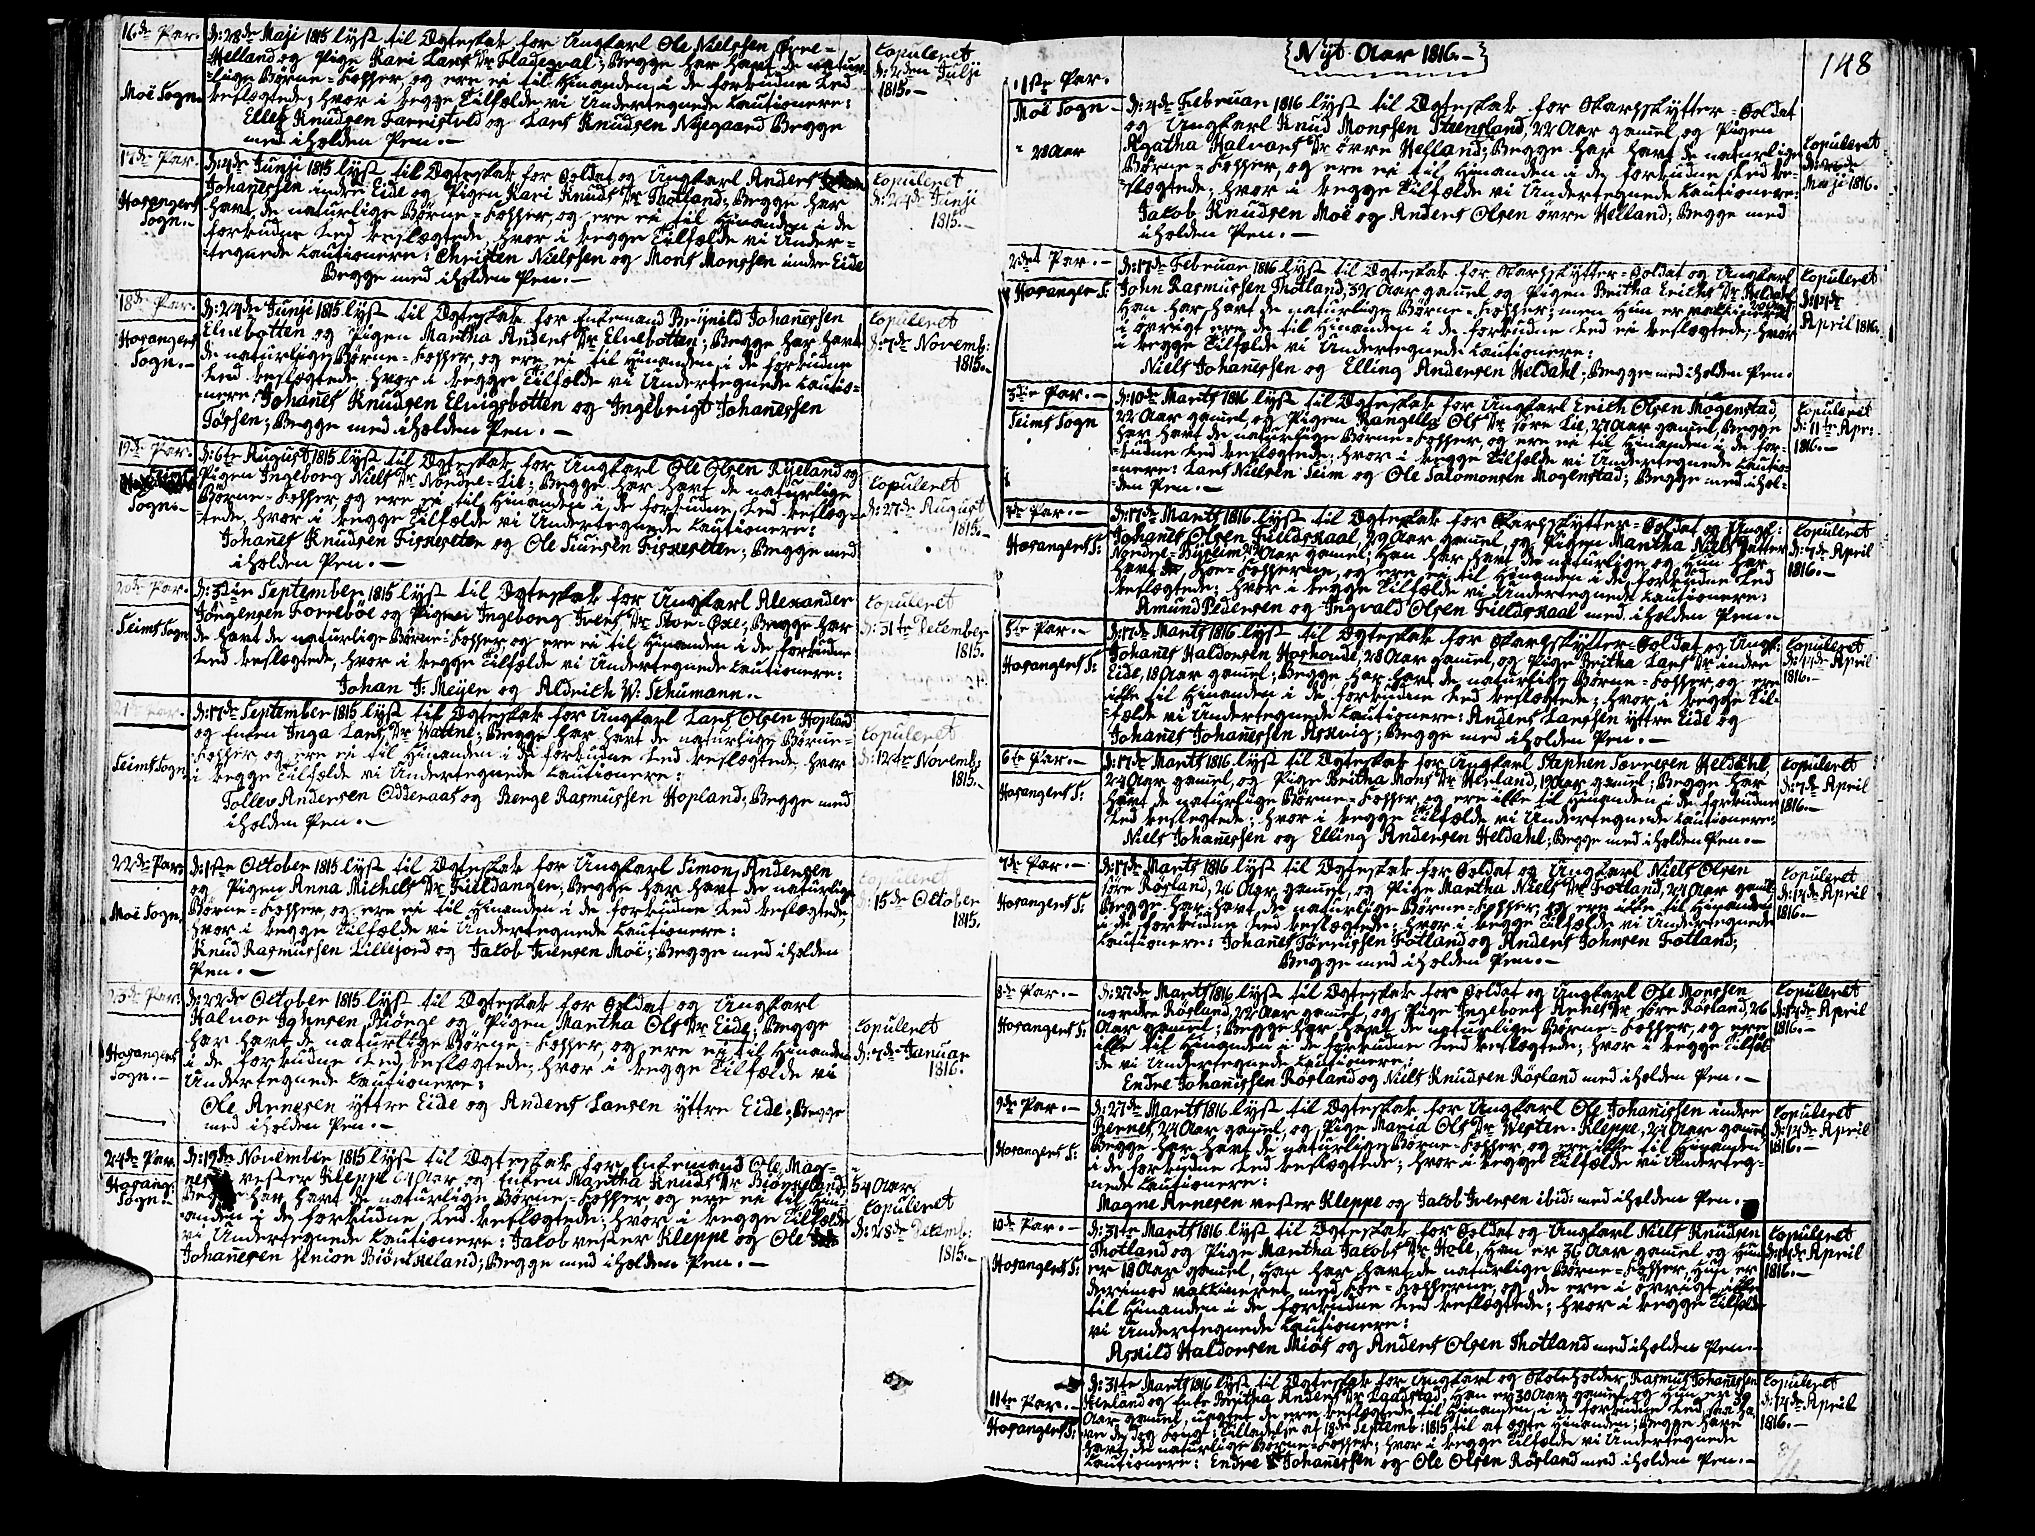 16de Par.
Moë Sogn.
D: 28de Maji 1815 lyst til Ægteskab for Ungkarl Ole Nielssen Övre-
Helland og Pige Kari Lars Dr Fladeqval; Begge har havt de natur-
-lige Börne-Kopper, og ere ei til Hinanden i de forbudne Led
beslægtede; hvor i begge Tilfælde vi Undertegnede Cautionere:
Elleg Knudsen Farreistvedt og Lars Knudsen Nygaard Begge
med iholden Pen. —
Copuleret
D: 2den Julji
1815. —
17de Par.
Hosangers
Sogn. —
D: 4de Junji 1815 lyst til Ægteskab for Soldat og Ungkarl Anders
Johanessen indre Eide og Pigen Kari Knuds Dr Thotland; Begge har
havt de naturlige Börne-Kopper, og ere ei til Hinanden i de
forbudne Led beslægtede, hvor i begge Tilfælde vi Under-
-tegnede Cautionere: Christen Nielssen og Mons Monssen indre Eide
Begge med iholden Pen. —
Copuleret
D: 24de Junji
1815. —
18de Par.
Hosangers
Sogn. —
D: 24de Junji 1815 lyst til Ægteskab for Enkemand Brynild Johanessen
Elnebotten og Pigen Martha Anders Dr Elnebotten; Begge har havt
de naturlige Börne-Kopper, og ere ei til Hinanden i de forbudne
Led beslægtede, hvor i begge Tilfælde vi Undertegnede Cautio-
-nere: Johanes Knudsen Elnigsbotten og Ingebrigt Johanessen
Tössen; Begge med iholden Pen. —
Copuleret
D: 7de Novemb:
1815. —
19de Par.
Sogn. —
D: 6te August 1815 lyst til Ægteskab for Ungkarl Ole Olsen Ryeland og
Pigen Ingeborg Niels Dr Nordre-Lie; Begge har havt de naturlige
Börne-Kopper, og ere ei til Hinanden i de forbudne Led beslæg-
-tede, hvor i begge Tilfælde vi Undertegnede Cautionere:
Johanes Knudsen Fixesetter og Ole Fixesetter; Begge med
iholden Pen. —
Copuleret
D: 27de August
1815. —
20de Par.
Seims Sogn
D: 3die September 1815 lyst til Ægteskab for Ungkarl Alexander
Jörgensen Forreböe og Pigen Ingeborg Ivers Dr Stor-Oxe; Begge har
de havt de naturlige Börne-Kopper og ere ei til Hinanden i de forbudne
Led beslægtede, hvor i begge Tilfælde vi Undertegnede Cautionere:
Johan F: Meyer og Aldrich W: Schumann. —
Copuleret
D: 31te December
1815.
21de Par.
Seims Sogn
D: 17de September 1815 lyst til Ægteskab for Ungkarl Lars Olsen Hopland
og Enken Inga Lars Dr Wattne; Begge har havt de naturlige Börne-
-Kopper og ere ei til Hinanden i de forbudne Led beslægtede, hvor
i begge Tilfælde vi Undertegnede Cautionere:
Tollev Andersen Odderaas og Berge Rasmussen Hopland; Begge med
iholden Pen. —
Copuleret
D: 12te Novemb:
1815. —
22de Par.
Moë Sogn.
D: 1ste October 1815 lyst til Ægteskab for Ungkarl Simon Andersen
og Pigen Anna Michels Dr Fielldangen; Begge har havt de naturlige
Börne-Kopper og ere ei til Hinanden i de forbudne Led beslægtede,
hvor i begge Tilfælde vi Undertegnede Cautionere:
Knud Rasmussen Lillejord og Jacob Iversen Moë; Begge med iholden
Pen. —
Copuleret
D: 15de October
1815.
23de Par.
Hosangers
Sogn. —
D: 22de October 1815 lyst til Ægteskab for Soldat og Ungkarl
Halvor Johnsen Biörge og Pigen Martha Ols Dr Eide; Begge
har havt de naturlige Börne-Kopper, og ere ei til Hinanden
i de forbudne Led beslægtede, hvor i begge Tilfælde vi
Undertegnede Cautionere:
Ole Arnesen yttre Eide og Anders Larsen yttre Eide; Begge
med iholden Pen. —
Copuleret
D: 7de Januar
1816.
24de Par.
Hosang:
Sogn. —
D: 19de November 1815 lyst til Ægteskab for Enkemand Ole Mag-
nesen vester Kleppe 64 Aar og Enken Martha Knuds Dr Biörneland
Begge har havt de naturlige Börne-Kopper og ere ei til Hin-
-anden i de forbudne Led beslægtede; hvor i begge Tilfælde
vi Undertegnede Cautionere: Jacob vester Kleppe og Ole
Johanesen Henion Biörneland; Begge med iholden Pen. —
54 Aar.
Copuleret
D: 28de Decemb:
1815. —
Nyt Aar 1816. —
148
1ste Par.
Moë Sogn —
22 Aar
D: 4de Februar 1816 lyst til Ægteskab for Skarpskytter-Soldat
og Ungkarl Knud Monssen Steensland, 22 Aar gamel, og Pigen
Agatha Halvors Dr övre Helland; Begge har havt de naturlige
Börne-Kopper, og ere ei til Hinanden i de forbudne Led be-
-slægtede; hvor i begge Tilfælde vi Undertegnede Cautionere:
Jacob Knudsen Moë og Anders Olsen övre Helland; Begge med
iholden Pen. —
Copuleret
Maji 1816.
2det Par. —
Hosangers S:
D: 17de Februar 1816 lyst til Ægteskab for Skarpskytter-Soldat og Ungkarl
John Rasmussen Thotland, 32 Aar gamel og Pigen Britha Erichs Dr Heldahl
Han har havt de naturlige Börne-Kopper; men Hun er vakcineret
i övrigt ere de til Hinanden i de forbudne Led ei beslægtede; hvor
i begge Tilfælde vi Undertegnede Cautionere:
Niels Johanessen og Elling Andersen Heldahl; Begge med iholden Pen.
Copuleret
D: 14de
April 1816.
3die Par. —
Seims Sogn
D: 10de Marts 1816 lyst til Ægteskab for Ungkarl Erich Olsen Mogenstad,
22 Aar gamel, og Pigen Rangele Ols Dr söre Lie, 27 Aar gamel, Begge
har havt de naturlige Börne-Kopper, og ere ei til Hinanden i de for-
-budne Led beslægtede; hvor i begge Tilfælde vi Undertegnede Cautio-
-nere: Lars Nielsen Seim og Ole Salomonsen Mogenstad; Begge med ihol-
-den Pen. —
Copuleret
D: 11te Apr:
1816. —
4de Par. —
Hosangers S:
D: 17de Marts 1816 lyst til Ægteskab for Skarpskytter-Soldat og Ungk:
Johanes Olsen Fieldskaal, 29 Aar gamel, og Pigen Martha Niels Datter
Nordre-Hysseim 22 Aar gamel; Han har havt de naturlige, og Hun har
havt Koe-Kopperne, og ere ei til Hinanden i de forbudne Led
beslægtede; hvor i begge Tilfælde vi Undertegnede Cautionere:
Amund Pedersen og Ingvald Olsen Fieldskaal med iholden Pen. —
Copuleret
D: 7de April
1816. —
5te Par. —
Hosangers S:
D: 17de Marts 1816 lyst til Ægteskab for Skarpskytter-Soldat og Ungk:
Johanes Haldorsen Hoshovde, 28 Aar gamel, og Pige Britha Lars Dr indre
Eide, 18 Aar gamel; Begge har havt de naturlige Börne-Kopper og ere
ikke til Hinanden i de forbudne Led beslægtede; hvor i begge Til-
-fælde vi Undertegnede Cautionere: Anders Larssen yttre Eide og
Johanes Johanessen Askvig; Begge med iholden Pen. —
Copuleret
D: 14de April
1816. —
6te Par. —
Hosangers S:
D: 17de Marts 1816 lyst til Ægteskab for Ungkarl Stephen Torresen Heldahl,
24 Aar gamel, og Pige Britha Mons Dr Henland, 19 Aar gamel; Begge har
havt de naturlige Börne-Kopper, og ere ikke til Hinanden i de forbudne
Led beslægtede; hvor i begge Tilfælde vi Undertegnede Cautionere:
Niels Johanessen og Elling Andersen Heldahl; Begge med iholden Pen. —
Copuleret
D: 7de April
1816. —
7de Par. —
Hosangers S:
D: 17de Marts 1816 lyst til Ægteskab for Soldat og Ungkarl Niels Olsen
söre Rösland, 26 Aar gamel, og Pige Martha Niels Dr Fotland, 24 Aar gamel
Begge har havt de naturlige Börne-Kopper, og ere ikke til Hinanden
i de forbudne Led beslægtede; hvor i begge Tilfælde vi Undertegnede
Cautionere: Johanes Fotland og Anders Johnsen Fotland;
Begge med iholden Pen. —
Copuleret
D: 14de April
1816. —
8de Par. —
Hosangers S:
D: 27de Marts 1816 lyst til Ægteskab for Soldat og Ungkarl Ole Monssen
nordre Rösland, 22 Aar gamel, og Pige Ingeborg Arnes Dr söre Rösland, 26
Aar gamel; Begge har havt de naturlige Börne-Kopper, og ere
ikke til Hinanden i de forbudne Led beslægtede; hvor i begge Tilfæl-
de vi Undertegnede Cautionere:
Endre Johanissen Rösland og Niels Knudsen Rösland med iholden Pen. —
Copuleret
D: 14de April
1816. —
9de Par. —
Hosangers S:
D: 27de Marts 1816 lyst til Ægteskab for Ungkarl Ole Johanissen indre
Bernes, 24 Aar gamel, og Pige Maria Ols Dr Vester-Kleppe, 24 Aar gamel
Begge har havt de naturlige Börne-Kopper, og ere ikke til Hinanden
i de forbudne Led beslægtede; hvor i begge Tilfælde vi Underteg-
nede Cautionere:
Magne Arnesen vester Kleppe og Jacob Iversen ibid: med iholden Pen. —
Copuleret
D: 14de April
1816. —
10de Par. —
Hosangers S:
D: 31te Marts 1816 lyst til Ægteskab for Soldat og Ungkarl Niels Knudsen
Thotland og Pige Martha Jacobs Dr Hole, Han er 36 Aar gamel og Hun
er 18 Aar gamel, Han har havt de naturlige Börne-Kopper, Hun er
derimod vakcineret med Koe-Kopperne, og de ere i övrigt ikke
til Hinanden i de forbudne Led beslægtede; hvor i begge Tilfælde
vi Undertegnede Cautionere:
Askild Haldorsen Miös og Anders Olsen Thotland med iholden Pen. —
Copuleret
D: 14de April
1816. —
11te Par. —
Hosangers S:
D: 31te Marts 1816 lyst til Ægteskab for Ungkarl og Skoleholder Rasmus Johanessen
Henland og Enke Britha Anders Dr Raadstad, Han er 30 Aar gamel og Hun er 39
Aar gamel, uagtet de ere beslægtede til Hinanden i de forbudne Led, saa ha-
ve de dog Kongl: Tilladelse af 18de Septemb: 1815 til at ægte Hinanden; Begge have
havt de naturlige Börne-Kopper; hvor i begge Tilfælde vi Undertegnede
Cautionere: Endre Johanessen og Ole Olsen Rösland med iholden Pen. —
Copuleret
D: 14de April
1816. —